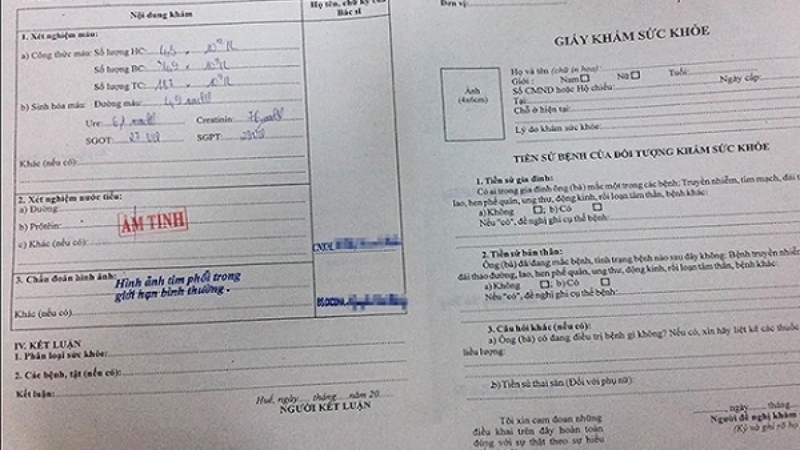 Nội dung khám
Họ tên, chữ ký của
Bác sĩ
1. Xét nghiệm máu:
a) Công thức máu: Số lượng HC: 4,5 x 10¹²/l
Số lượng BC: 10⁹/l
Số lượng TC: 187 x 10⁹/l
b) Sinh hóa máu: Đường máu: 4,9
Ure: Creatinin: 76
SGOT: 27 SGPT:
Khác (nếu có):
2. Xét nghiệm nước tiểu:
a) Đường:
b) Prôtêin:
ÂM TÍNH
c) Khác (nếu có):
3. Chẩn đoán hình ảnh:
Hình ảnh tim phổi trong
giới hạn bình thường.
Khác (nếu có):
IV. KẾT LUẬN
1. Phân loại sức khỏe:
2. Các bệnh, tật (nếu có):
Kết luận:
Huế, ngày tháng năm 20
NGƯỜI KẾT LUẬN
Đơn vị:
GIẤY KHÁM SỨC KHỎE
Ảnh
(4x6cm)
Họ và tên (chữ in hoa):
Giới: Nam Nữ Tuổi:
Số CMND hoặc Hộ chiếu: Ngày cấp:
Tại:
Chỗ ở hiện tại:
Lý do khám sức khỏe:
TIỀN SỬ BỆNH CỦA ĐỐI TƯỢNG KHÁM SỨC KHỎE
1. Tiền sử gia đình:
Có ai trong gia đình ông (bà) mắc một trong các bệnh: Truyền nhiễm, tim mạch, đái
lao, hen phế quản, ung thư, động kinh, rối loạn tâm thần, bệnh khác:
a) Không ; b) Có
Nếu "có", đề nghị ghi cụ thể bệnh:
2. Tiền sử bản thân:
Ông (bà) đã đang mắc bệnh, tình trạng bệnh nào sau đây không: Bệnh truyền nhiễm
đái tháo đường, lao, hen phế quản, ung thư, động kinh, rối loạn tâm thần, bệnh khác:
a) Không ; b) Có
Nếu "có", đề nghị ghi cụ thể bệnh:
3. Câu hỏi khác (nếu có):
a) Ông (bà) có đang điều trị bệnh gì không? Nếu có, xin hãy liệt kê các thuốc
liều lượng:
b) Tiền sử thai sản (Đối với phụ nữ):
ngày tháng
Tôi xin cam đoan những
điều khai trên đây hoàn toàn
đúng với sự thật theo sự hiểu
Người đề nghị khám
(Ký và ghi rõ họ